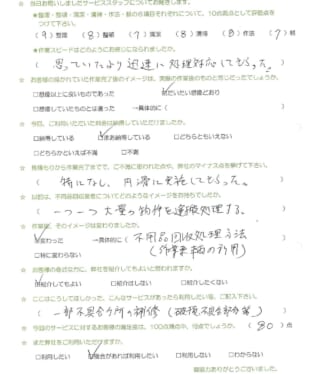 ☆ 当日お伺いしましたサービススタッフについてお聞きします。
＊整理・整頓・清潔・清掃・作法・躾の6項目それぞれについて、10点満点として評価点を
つけて下さい。
( 9 ) 整理 ( 8 ) 整頓 ( 7 ) 清潔 ( 8 ) 清掃 ( 8 ) 作法 ( 9 ) 躾
＊作業スピードはどのようにお感じになられましたか。
( 思っていたより迅速に処理対応してもらった。 )
☆ お客様の描かれていた作業完了後のイメージは、実際の作業後のものと同じだったでしょうか。
□想像以上に良いものであった ☑だいたい想像どおり
□想像していたものとは違った →具体的に ( )
☆ 今回、ご利用いただいた料金は納得していただけましたか。
□納得している ☑まあ納得している □どちらともいえない
□どちらかといえば不満 □不満
☆ 見積もりから作業完了までで、ご不満に思われた点や、弊社のマイナス点を挙げて下さい。
( 特になし、円滑に実施してもらった。 )
☆ 以前は、不用品回収業者についてどのようなイメージをお持ちでしたか。
( 一つ一つ大量の物件を運搬処理する。 )
☆ 作業後、そのイメージは変わりましたか。
☑変わった →具体的に ( 不用品回収処理方法
□特に変わらない (作業車輌の利用) )
☆ お客様の身近な方に、弊社を紹介してもよいと思われますか。
☑紹介してもよい □紹介はしない □紹介したくない
☆ ここはこうしてほしかった、こんなサービスがあったら利用したい等、ご記入下さい。
( 一部不具合ヶ所の補修 )
☆ 今回のサービスに対するお客様の満足度は、100点満点中、何点でしょうか。 ( 80 ) 点
☆ また弊社をご利用いただけますか。
□利用したい ☑機会があれば利用したい □利用しない □わからない
ご協力ありがとうございました。